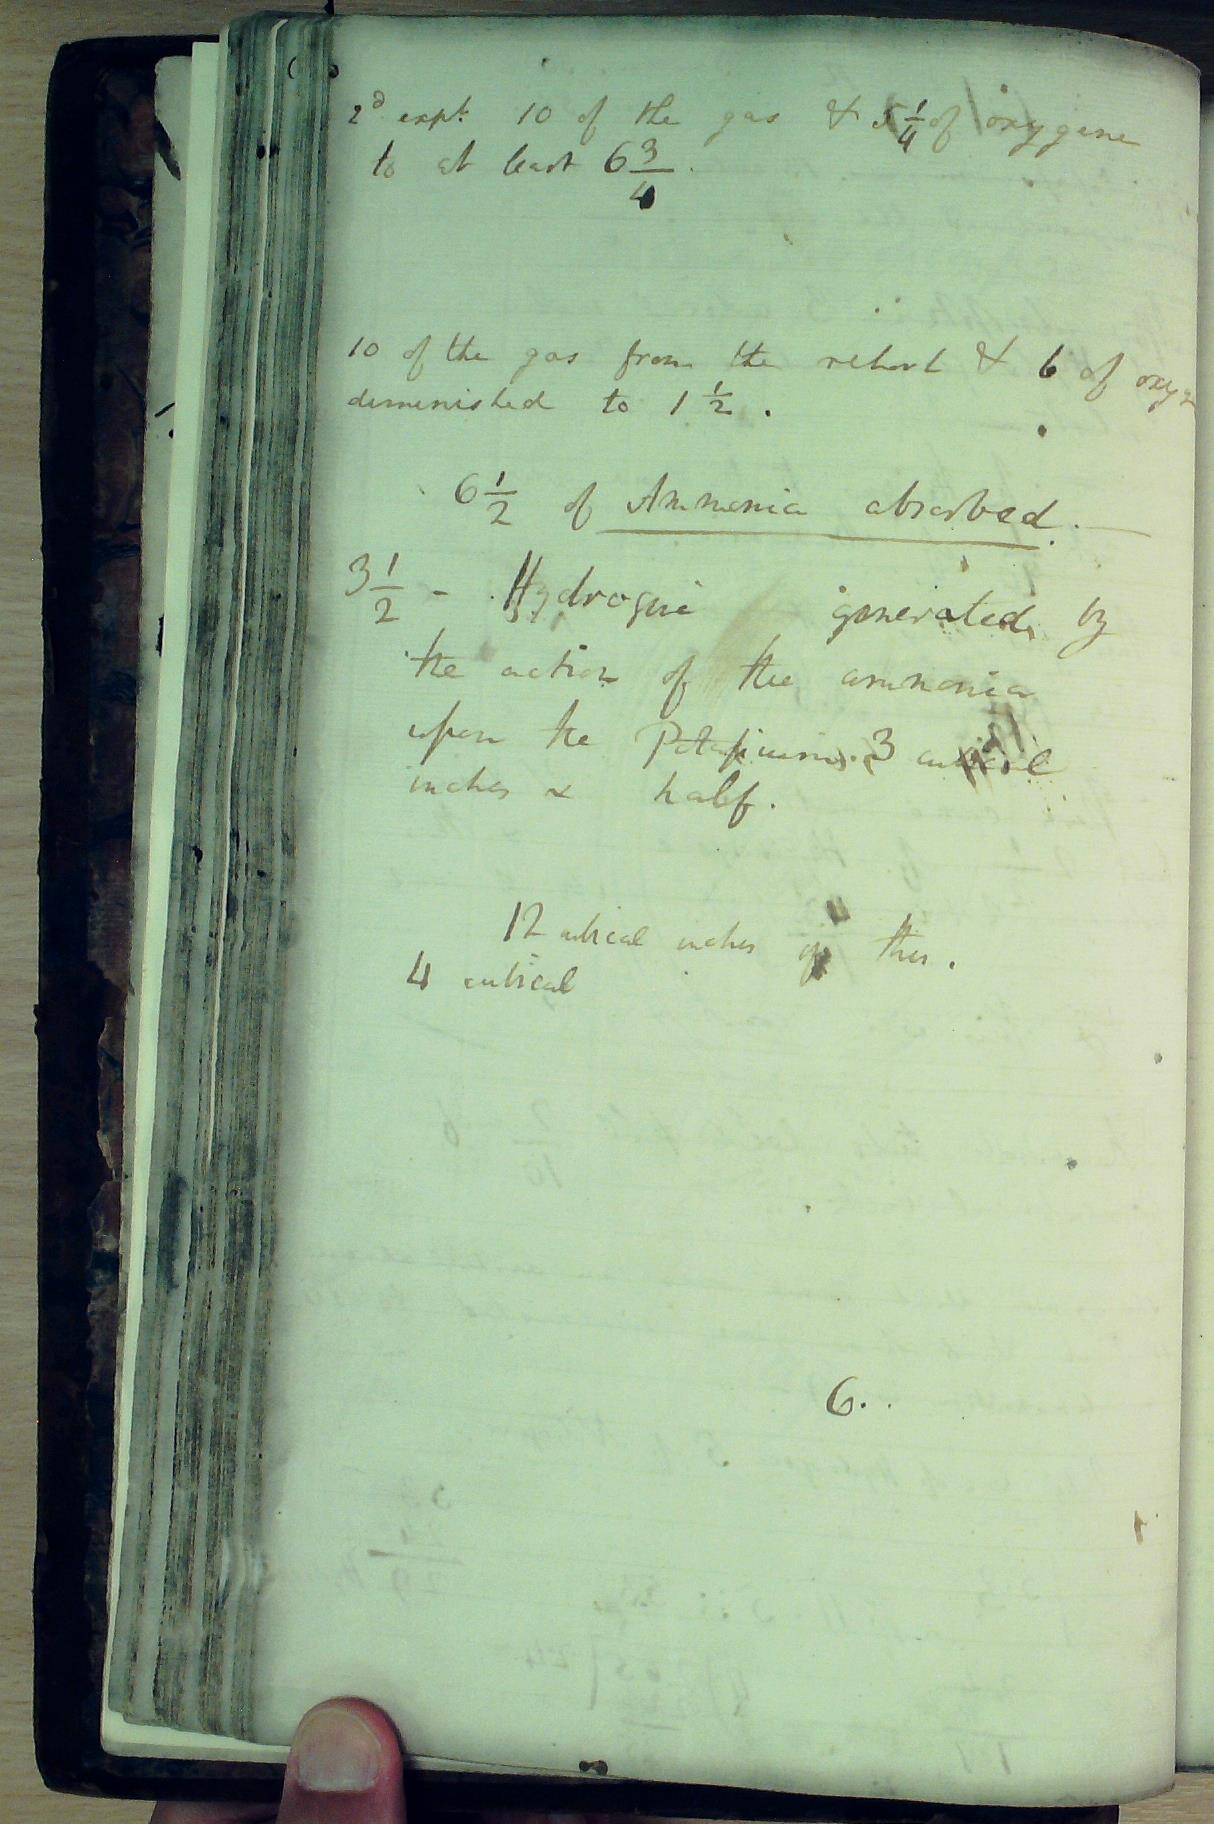 2d expt. 10 of the gas & 5 1/4 of oxygene
to at least 6 3/4.
10 of the gas from the retort & 6 of oxyg
diminished to 1 1/2.
6 1/2 of Ammonia absorbed.
3 1/2 - Hydrogene generated by
the action of the ammonia
upon the Potassium. 3 cubical
inches & half.
12 cubical inches of this.
4 cubical
6.